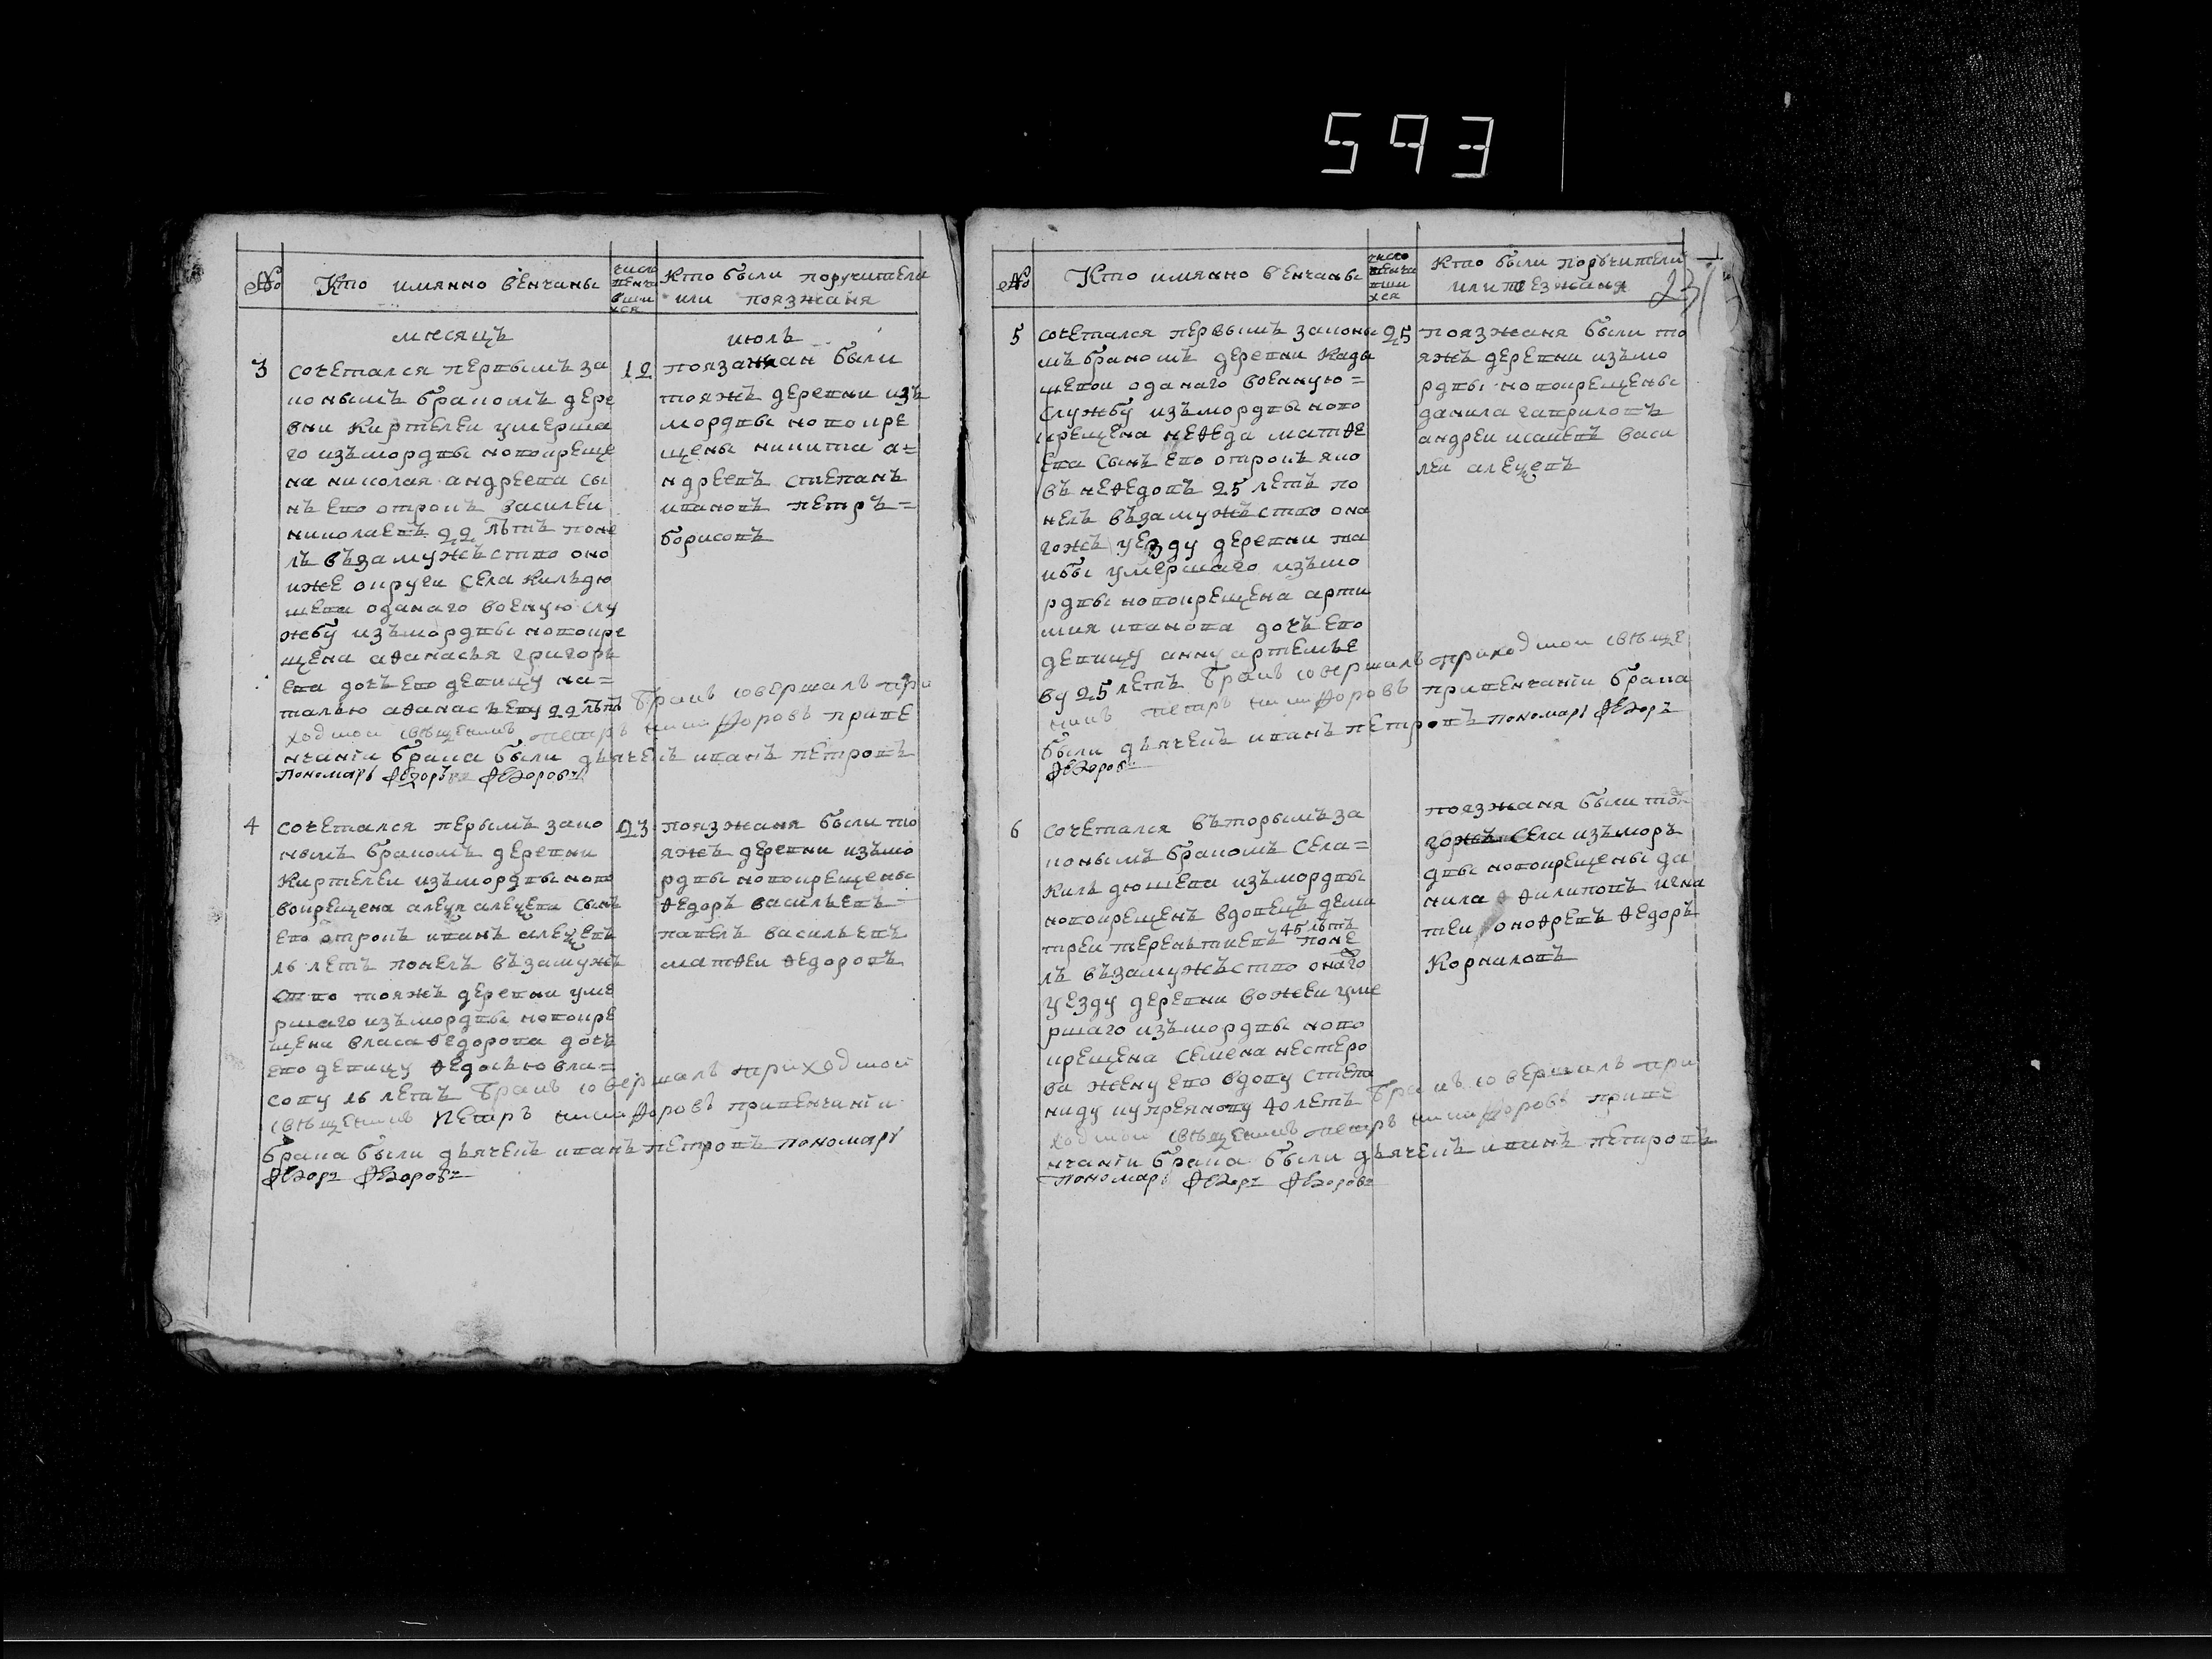 593
№
Кто имянно венчаны
число венча вши хся
Кто были поручители или поязжаня
месяцъ
июль
3
12
сочетался первымъ за
конымъ бракомъ дере
вни Киртелеи умерша
го изъмордвы новокреще
на николая андреева сы
нъ ево отрокъ василеи
николаевъ 22 лѣтъ поне
лъ възамужъство оно
иже округи села кильдю
шева оданаго военую слу
жбу изъмордвы новокре
щена аѳанасья григорь
ева дочь ево девицу на=
талью аѳанасьеву 22 лѣтъ бракъ совершалъ при
ходскои свѣщенникъ петръ никифоровъ приве
нчаніи брака были дьячекъ иванъ петровъ
пономарь Федоръ Федоровъ
поязажан были
тояжъ деревни изъ
мордвы новокре
щены никита а=
ндреевъ степанъ
ивановъ петръ=
борисовъ
4
23
сочетался перымъ зако
нымъ бракомъ деревни
Киртелеи изъмордвы ново
вокрещена алеѯя алеѯева сынъ
ево отрокъ иванъ алеѯевъ
16 летъ понелъ възамужъ
ство тояжъ деревни уме
ршаго изъмордвы новокре
щена власа ѳедорова дочь
ево девицу ѳедосью вла=
сову 16 летъ бракъ совершалъ приходской
свѣщенникъ петръ никифоровъ привенчаніи
брака были дьячекъ иванъ петровъ пономарь
Федоръ Федоровъ
поязжаня были то
яжъ деревни изъмо
рдвы новокрещены
ѳедоръ васильевъ
павелъ васильевъ
матѳеи ѳедоровъ
№
Кто имянно венчаны
число венча вши хся
Кто были поручители
или поезжаня
23
5
25
сочетался первымъ законы
мъ бракомъ деревни Кады
шевои оданаго военную=
службу изъмордвы ново
крещена неѳеда матѳе
ева сынъ ево отрокъ яко
въ неѳедовъ 25 летъ по
нелъ възамужъство она
гожъ уезду деревни та
кбы умершаго изъмо
рдвы новокрещена арти
мия иванова дочь ево
девицу анну артемье
ву 25 летъ бракъ совершалъ приходскои свѣще
никъ петръ никифоровъ привенчаніи брака
были дьячекъ иванъ петровъ пономарь Федоръ
Федоровъ
поязжаня были то
яжъ деревни изъмо
рдвы новокрещены
данила гавриловъ
андреи исаневъ васи
леи алеѯевъ
6
сочетался въторымъ за
конымъ бракомъ села=
кильдюшева изъмордвы
новокрещенъ вдовецъ дими
треи терентиевъ 45 лѣтъ поне
лъ възамужъство онаго
уезду деревни вожеи уме
ршаго изъмордвы ново
крещена семена нестеро
ва жену ево вдову степа
ниду купреянову 40 летъ бракъ совершалъ при
ходскои свѣщенникъ петръ никифоровъ приве
нчаніи брака были дьячекъ иванъ петровъ
пономарь Федоръ Федоровъ
поязжаня были тово
гожъ села изъморъ
двы новокрещены да
нила ѳилиповъ игна
теи оноѳревъ ѳедоръ
Корниловъ